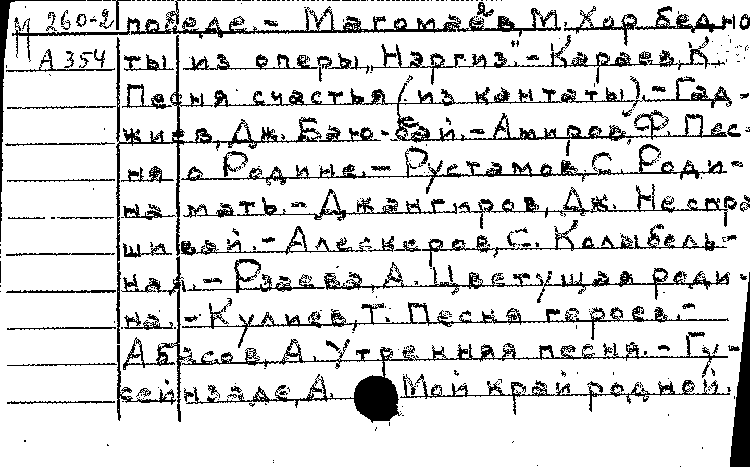 М 260-2 победе.- Магомаев, М. Хор бедно
А 354 ты из оперы „Наргиз".- Караев, К.
Песня счастья (из кантаты).- Гад-
жиев, Дж. Баю-бай.- Амиров, Ф. Пес-
ня о Родине.- Рустамов, С. Роди-
на мать.- Джангиров, Дж. Не спра
шивай.- Алескеров, С. Колыбель-
ная.- Рзаева, А. Цветущая роди-
на.- Кулиев, Т. Песня героев.-
Абасов, А. Утренняя песня.- Гу-
сейнзаде, А. Мой край родной.